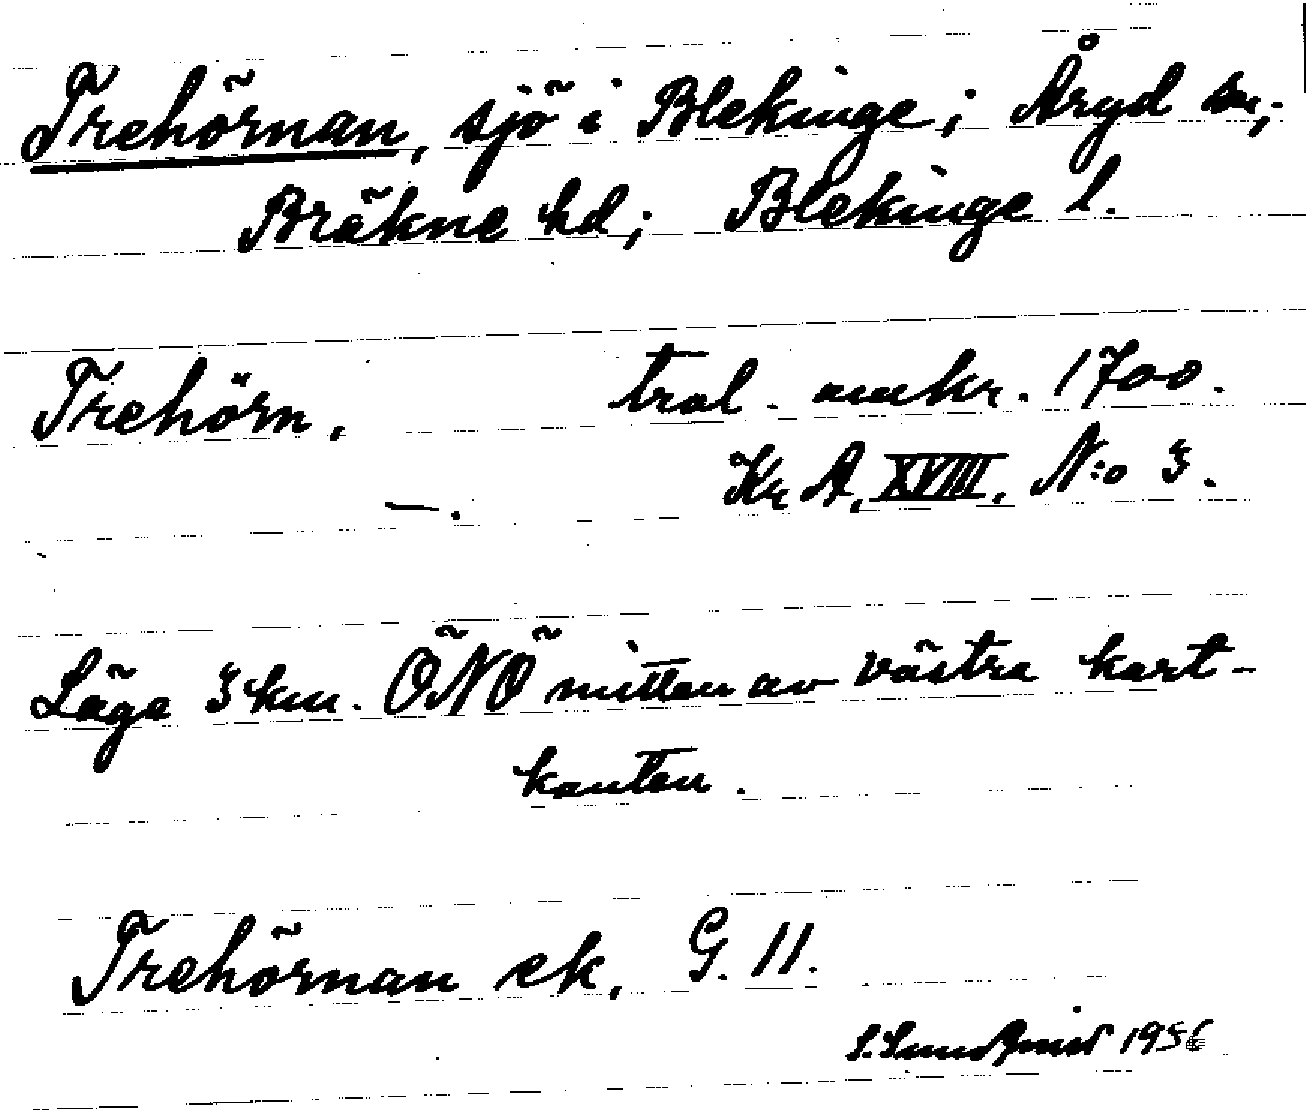 Trehörnan, sjö i Blekinge; Åryd sn;
Bräkne hd; Blekinge l.
Trehörn, trol. omkr. 1700.
—. Kr A, XVIII, N:o 3.
Läge 3 km. ÖNÖ mitten av västra kart-
kanten.
Trehörnan ek, G. 11.
S. Sundqvist 1956